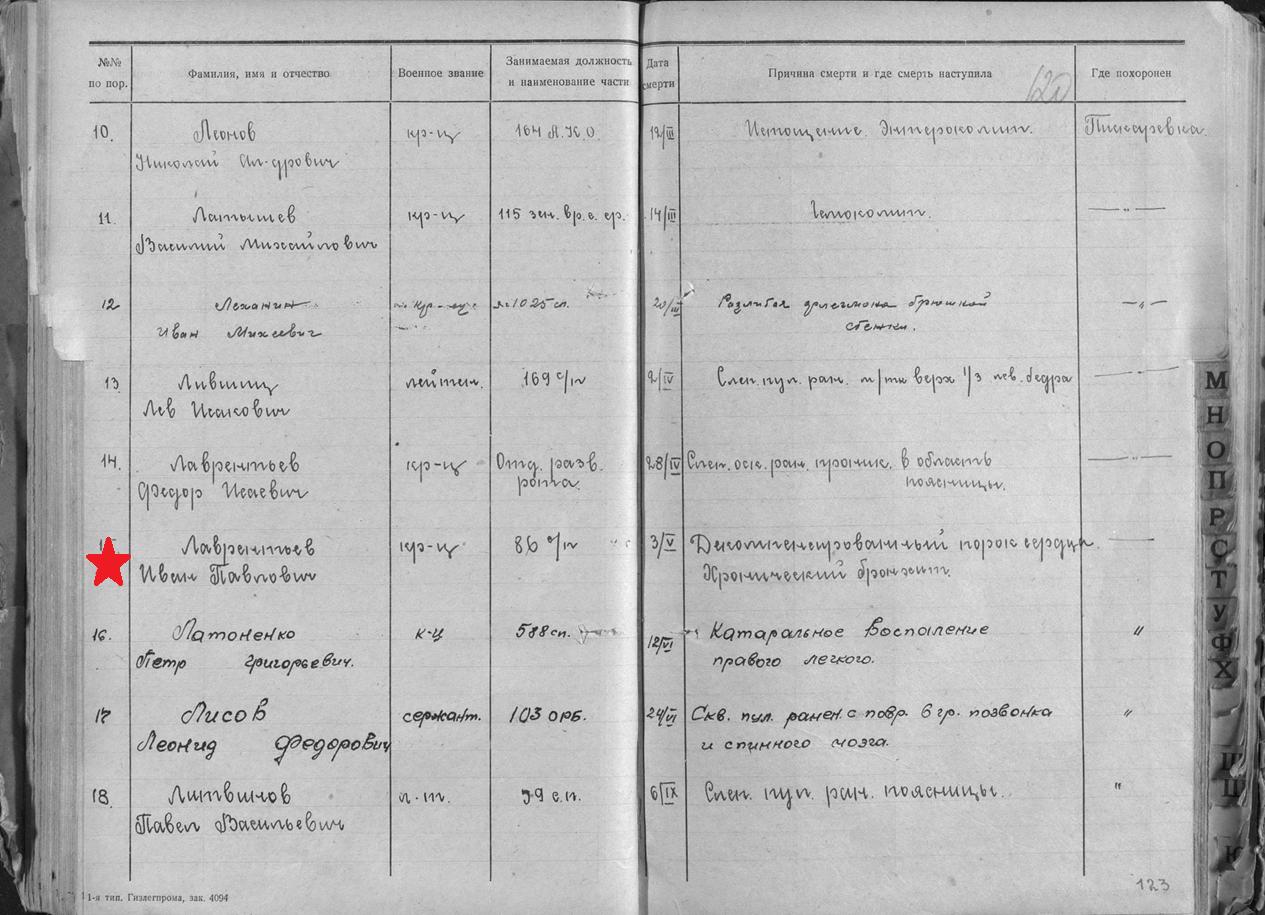 №№ по пор.
Фамилия, имя и отчество
Военное звание
Занимаемая должность и наименование части
Дата смерти
Причина смерти и где смерть наступила
Где похоронен
120
10. Леонов кр-ц 164 А.К.О. 12/III Истощение. Энтероколит. Пискаревка
Николай Ал-дрович
11. Латышев кр-ц 115 зен. 14/III Гемоколит. — " —
Василий Михайлович
12 Леханин кр-ец 1025 сп. 20/III Разлитая флегмона брюшной — " —
Иван Михеевич стенки.
13 Лившиц лейтен. 169 с/п 2/IV Слеп. пул. ран. м/тк верх 1/3 лев. бедра — " —
Лев Исакович
14. Лаврентьев кр-ц Отд. разв. 28/IV Слеп. оск. ран. проник. в область — " —
Федор Исаевич рота. поясницы.
Лаврентьев кр-ц 86 с/п 3/V Декомпенсированный порок сердца. —
Иван Павлович Хронический бронхит.
16. Латоненко к-ц 588 сп. 12/VI Катаральное Воспаление "
Петр Григорьевич. правого легкого.
17 Лисов сержант. 103 ОРБ. 24/VI Скв. пул. ранен. с повр. 6 гр. позвонка "
Леонид Федорович и спинного мозга.
18. Литвинов л-т. 59 с.п. 6/IX Слеп. пул. ран. поясницы. "
Павел Васильевич
1-я тип. Гизлегпрома, зак. 4094
123
М
Н
О
П
Р
С
Т
У
Ф
Х
Ш
Щ
Ю